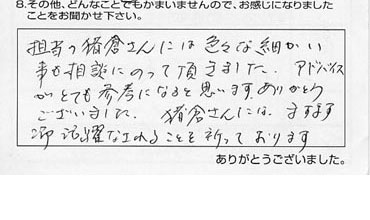 8.その他、どんなことでもかまいませんので、お感じになりました
ことをお聞かせ下さい。
担当の猪倉さんには色々な細かい
事も相談にのって頂きました。アドバイス
がとても参考になると思います。ありがとう
ございました。 猪倉さんには、ますます
御活躍なされることを祈っております
ありがとうございました。